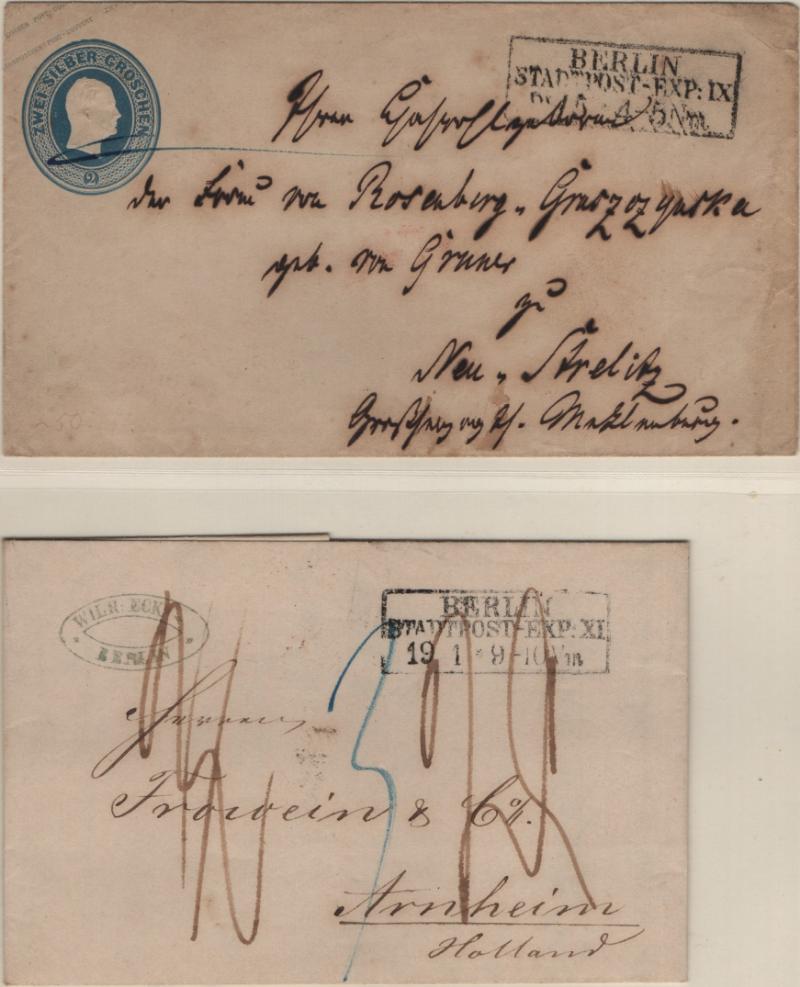 ZWEI SILBER GROSCHEN
2
BERLIN
STADTPOST-EXP: IX
4-5Nm
Ihrer Hochwohlgeboren
der Frau von Rosenberg-Gruszczynska
geb. von Gruner
zu
Neu-Strelitz
Großherzogth. Meklenburg.
~50
WILH. ECK
BERLIN
BERLIN
STADTPOST-EXP: XI
19 1 * 9-10Vm
Herren
Frowein & Co.
Arnheim
Holland